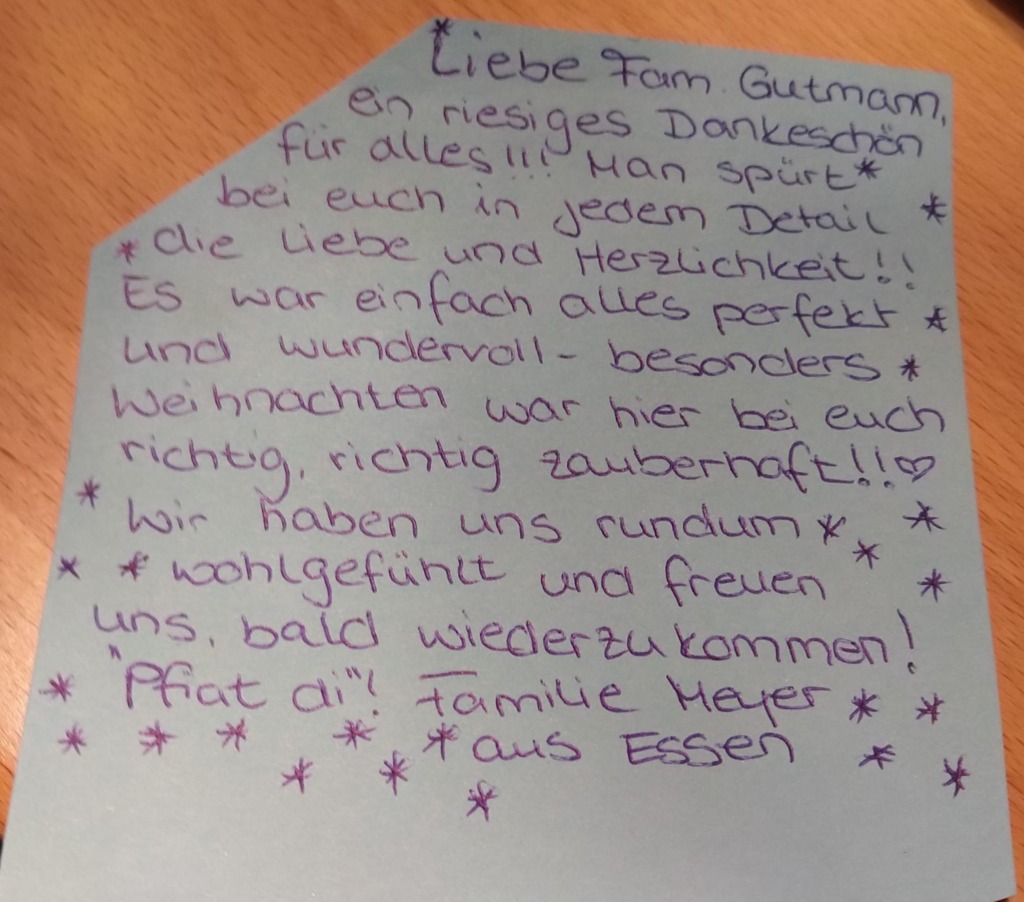 Liebe Fam. Gutmann,
ein riesiges Dankeschön
für alles!!! Man spürt*
bei euch in jedem Detail *
* die Liebe und Herzlichkeit!!
Es war einfach alles perfekt *
und wundervoll - besonders *
Weihnachten war hier bei euch
richtig, richtig zauberhaft!!♡
* Wir haben uns rundum * * *
* * wohlgefühlt und freuen *
uns, bald wiederzukommen!
* "Pfiat di"! Familie Meyer * *
* * * * * aus Essen * *
* * *